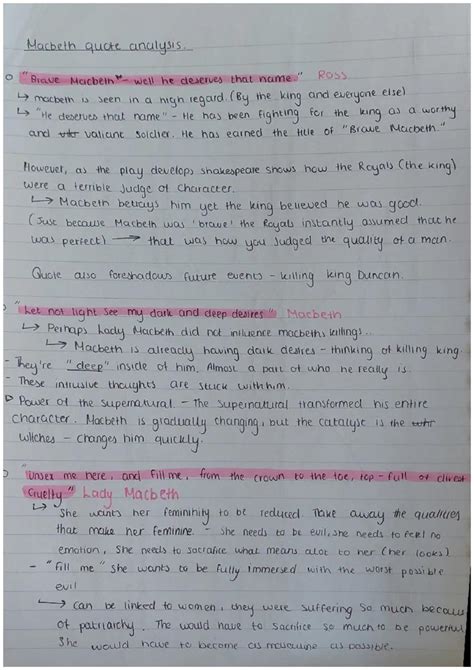 Macbeth quote analysis.
"Brave Macbeth" - well he deserves that name." Ross
↳ macbeth is seen in a high regard. (By the king and everyone else)
↳ "He deserves that name" - He has been fighting for the king as a worthy
and valiant soldier. He has earned the title of "Brave Macbeth."
However, as the play develops shakespeare shows how the Royals (the king)
were a terrible judge of character.
↳ Macbeth betrays him yet the king believed he was good.
(Just because Macbeth was 'brave' the Royals instantly assumed that he
was perfect) → that was how you judged the quality of a man.
Quote also foreshadows future events - killing king Duncan.
"Let not light see my dark and deep desires" Macbeth
↳ Perhaps Lady Macbeth did not inluence macbeths killings..
↳ Macbeth is already having dark desires - thinking of killing king
- They're "deep" inside of him. Almost a part of who he really is.
- These intrusive thoughts are stuck with him.
▷ Power of the supernatural - The supernatural transformed his entire
character. Macbeth is gradually changing, but the catalyse is the
witches - changes him quickly.
"Unsex me here, and fill me, from the crown to the toe, top-full of direst
cruelty" Lady Macbeth
↳ She wants her femininity to be reduced. Take away the qualities
that make her feminine - she needs to be evil, she needs to feel no
emotion, She needs to sacrafice what means alot to her (her looks)
- "Fill me" she wants to be fully immersed with the worst possible
evil
↳ Can be linked to women, they were suffering so much becaus
of patriarchy. The would have to sacrifice so much to be powerful
She would have to become as masculine as possible.